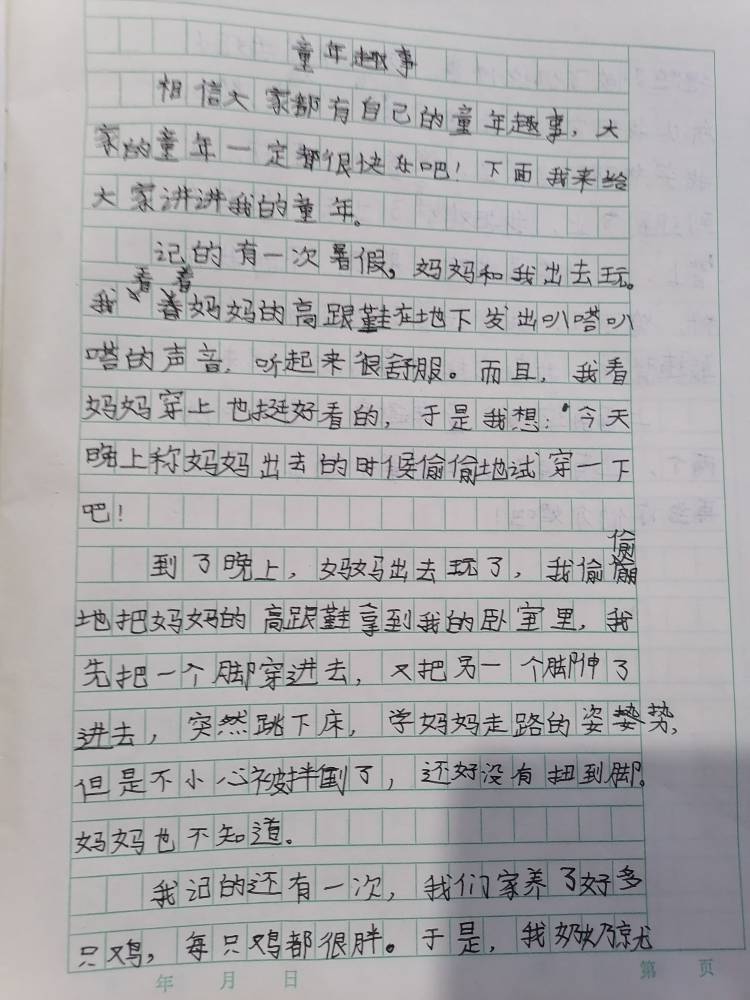 童年趣事
相信大家都有自己的童年趣事，大
家的童年一定都很快乐吧！下面我来给
大家讲讲我的童年。
记的有一次暑假，妈妈和我出去玩。
看着
我妈妈的高跟鞋在地下发出叭嗒叭
嗒的声音，听起来很舒服。而且，我看
妈妈穿上也挺好看的，于是我想：今天
晚上称妈妈出去的时候偷偷地试穿一下
吧！
偷
到了晚上，妈妈出去玩了，我偷
地把妈妈的高跟鞋拿到我的卧室里，我
先把一个脚穿进去，又把另一个脚伸了
进去，突然跳下床，学妈妈走路的姿势，
但是不小心被拌倒了，还好没有扭到脚。
妈妈也不知道。
我记的还有一次，我们家养了好多
只鸡，每只鸡都很胖。于是，我奶奶就
年 月 日
第 页